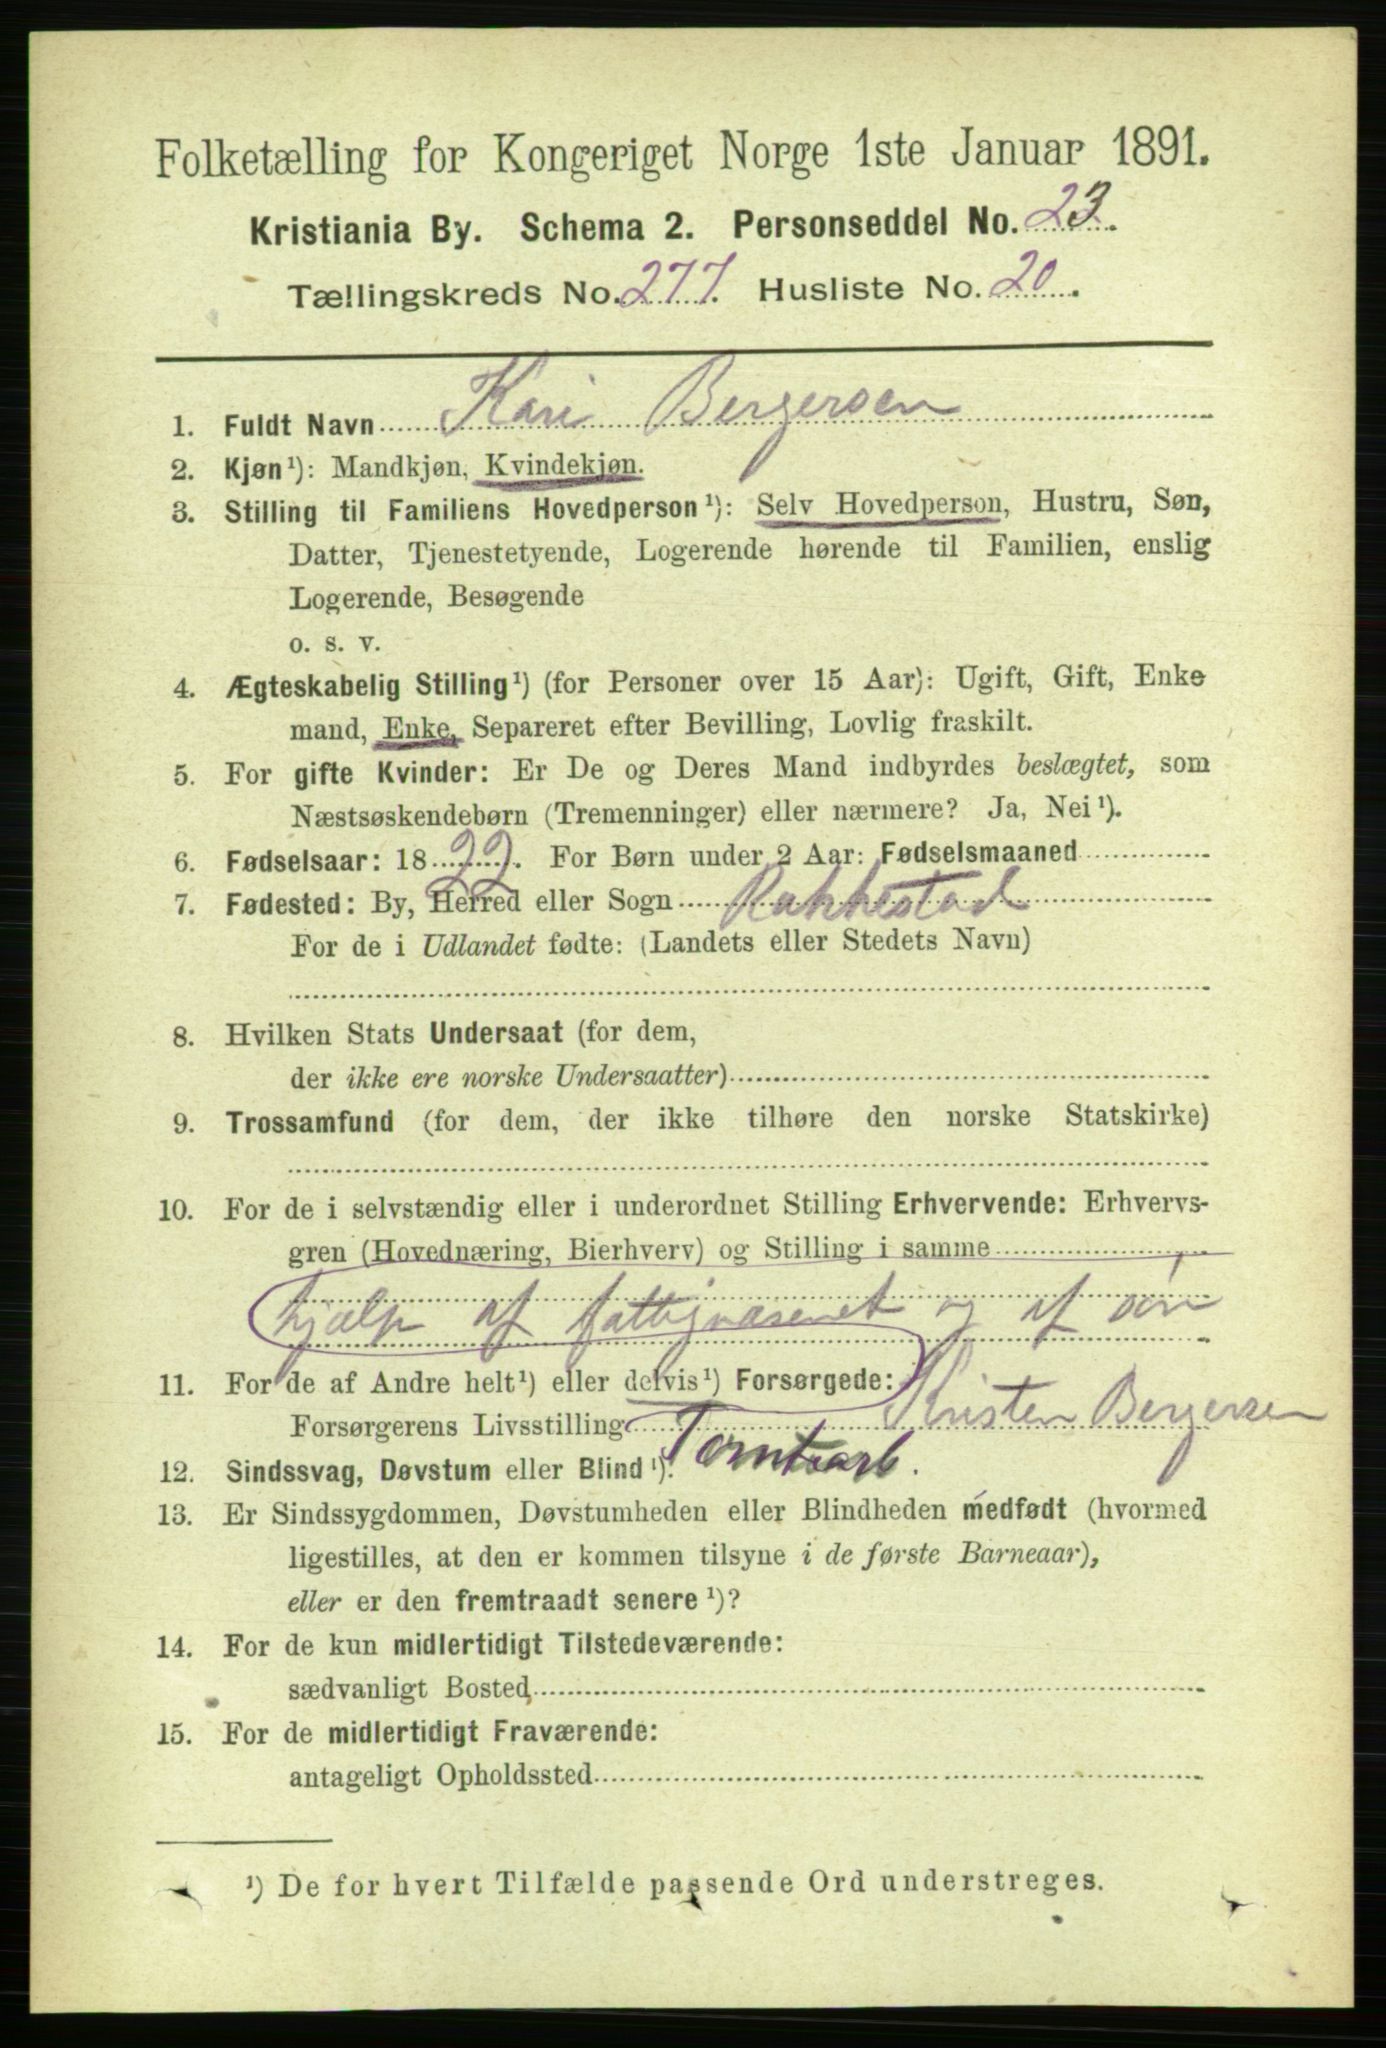 Folketælling for Kongeriget Norge 1ste Januar 1891.
Kristiania By. Schema 2. Personseddel No. 23.
Tællingskreds No. 277. Husliste No. 20.
1. Fuldt Navn Kari Bergersen
2. Kjøn¹): Mandkjøn, Kvindekjøn.
3. Stilling til Familiens Hovedperson¹): Selv Hovedperson, Hustru, Søn,
Datter, Tjenestetyende, Logerende hørende til Familien, enslig
Logerende, Besøgende
o. s. v.
4. Ægteskabelig Stilling¹) (for Personer over 15 Aar): Ugift, Gift, Enke
mand, Enke, Separeret efter Bevilling, Lovlig fraskilt.
5. For gifte Kvinder: Er De og Deres Mand indbyrdes beslægtet, som
Næstsøskendebørn (Tremenninger) eller nærmere? Ja, Nei¹).
6. Fødselsaar: 1822. For Børn under 2 Aar: Fødselsmaaned
7. Fødested: By, Herred eller Sogn Rakkestad
For de i Udlandet fødte: (Landets eller Stedets Navn)
8. Hvilken Stats Undersaat (for dem,
der ikke ere norske Undersaatter)
9. Trossamfund (for dem, der ikke tilhøre den norske Statskirke)
10. For de i selvstændig eller i underordnet Stilling Erhvervende: Erhvervs-
gren (Hovednæring, Bierhverv) og Stilling i samme
hjælp af fattigvæsenet og af søn
11. For de af Andre helt¹) eller delvis¹) Forsørgede:
Forsørgerens Livsstilling Kristen Bergersen
12. Sindssvag, Døvstum eller Blind¹). Tomtearb.
13. Er Sindssygdommen, Døvstumheden eller Blindheden medfødt (hvormed
ligestilles, at den er kommen tilsyne i de første Barneaar),
eller er den fremtraadt senere¹)?
14. For de kun midlertidigt Tilstedeværende:
sædvanligt Bosted
15. For de midlertidigt Fraværende:
antageligt Opholdssted
¹) De for hvert Tilfælde passende Ord understreges.